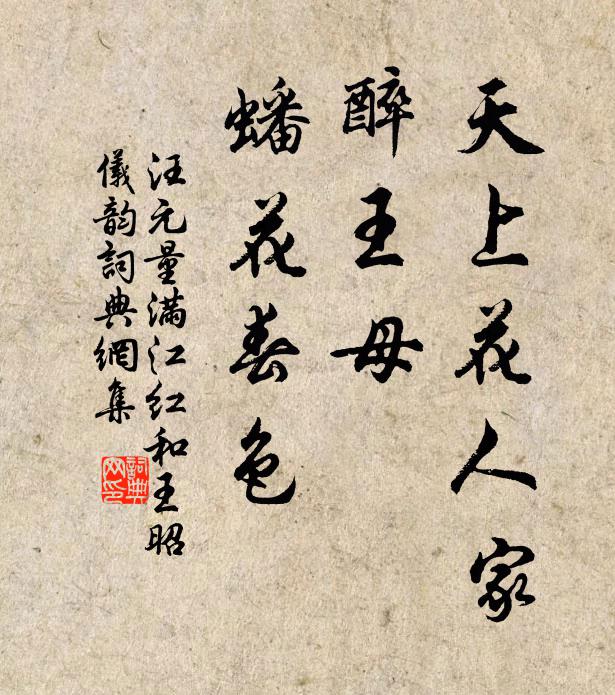 天上花人家
醉王母
蟠花春色
汪元量滿江红和王昭
儀韵詞典網集
詞典网印